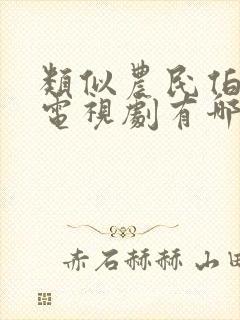 類似農民伯
電視劇有哪
赤石赫赫 山田